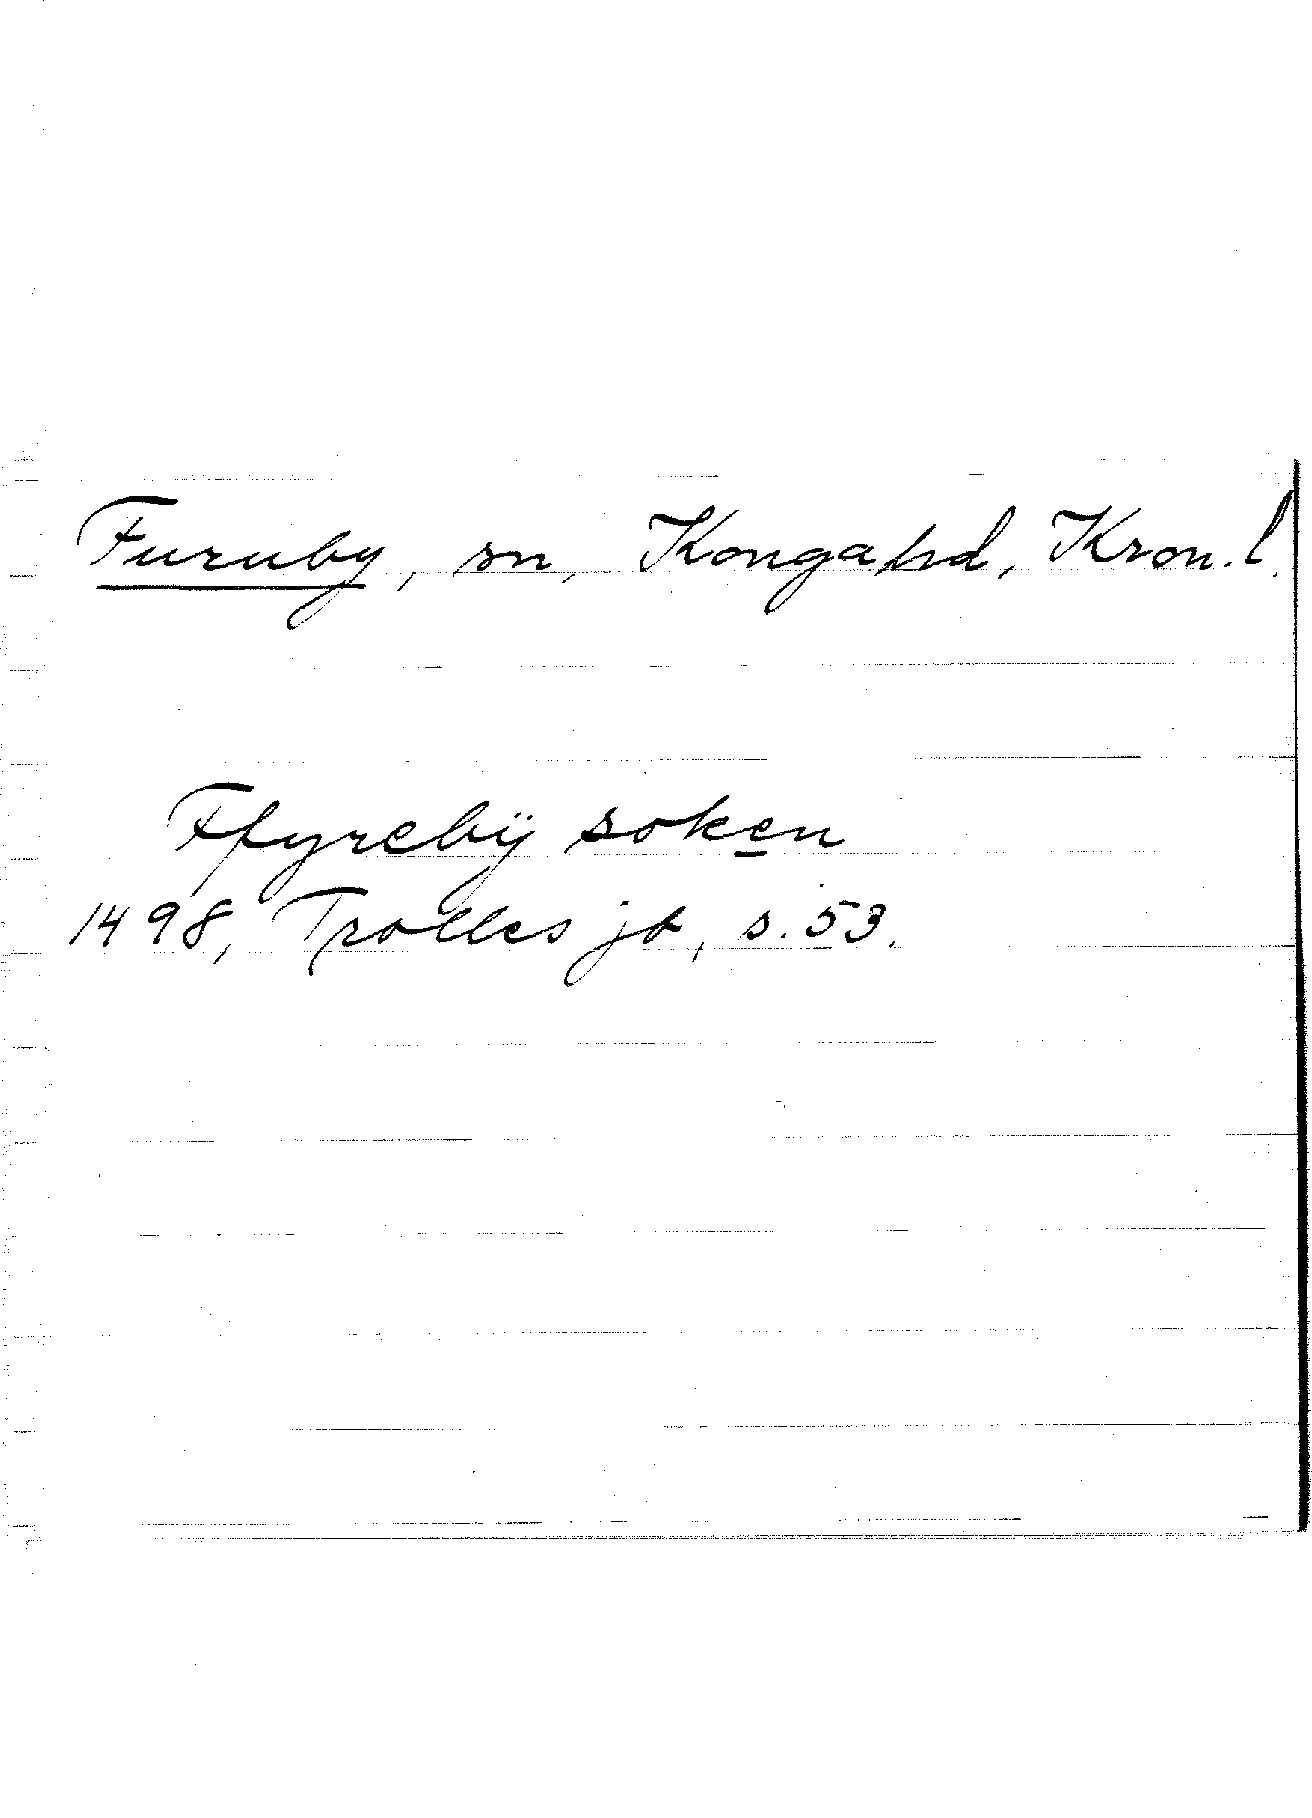 Furuby, sn, Konga hd, Kron. l.
Ffyrebÿ soken
1498, Trolles jb, s. 53.